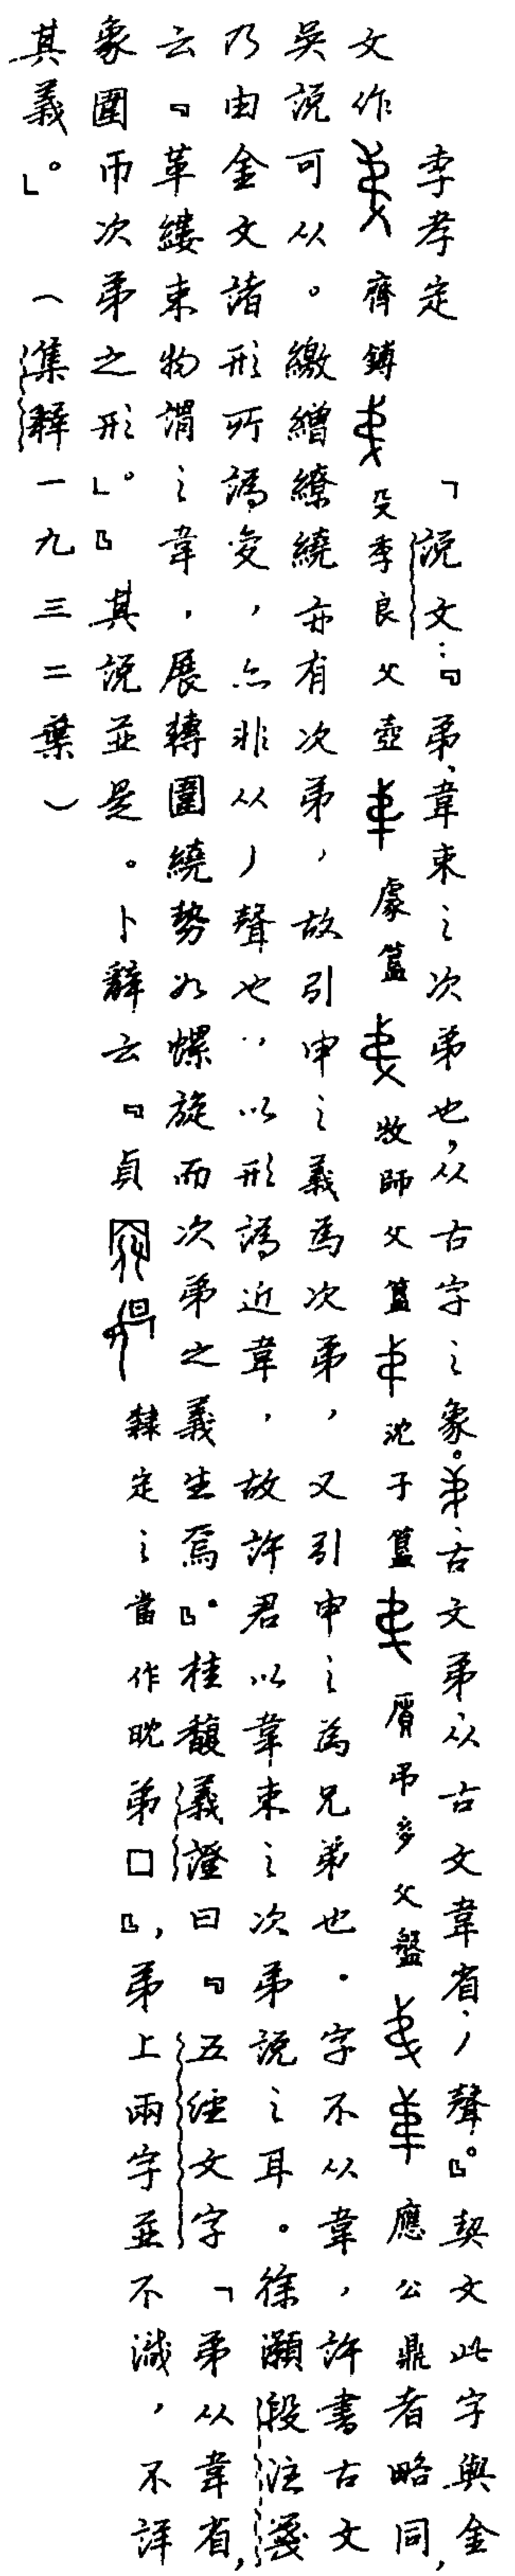 李孝定 「說文：『弟、韋束之次弟也，从古字之象。、古文弟从古文韋省，丿聲。』契文此字與金
文作 齊鎛 殳季良父壺 簋 牧師父簋 沈子簋 吊多父盤 應公鼎者略同，
吳說可从。繳繒繚繞亦有次弟，故引申之義為次弟，又引申之為兄弟也。字不从韋，許書古文
乃由金文諸形所譌變，亦非从丿聲也，以形譌近韋，故許君以韋束之次弟說之耳。徐灝段注箋
云『革縷束物謂之韋，展轉圍繞勢如螺旋而次弟之義生焉』。桂馥義證曰『五經文字「弟从韋省，
象圍帀次弟之形」。』其說並是。卜辭云『貞 隸定之當作 弟□』，弟上兩字並不識，不詳
其義。」 （集釋一九三二葉）